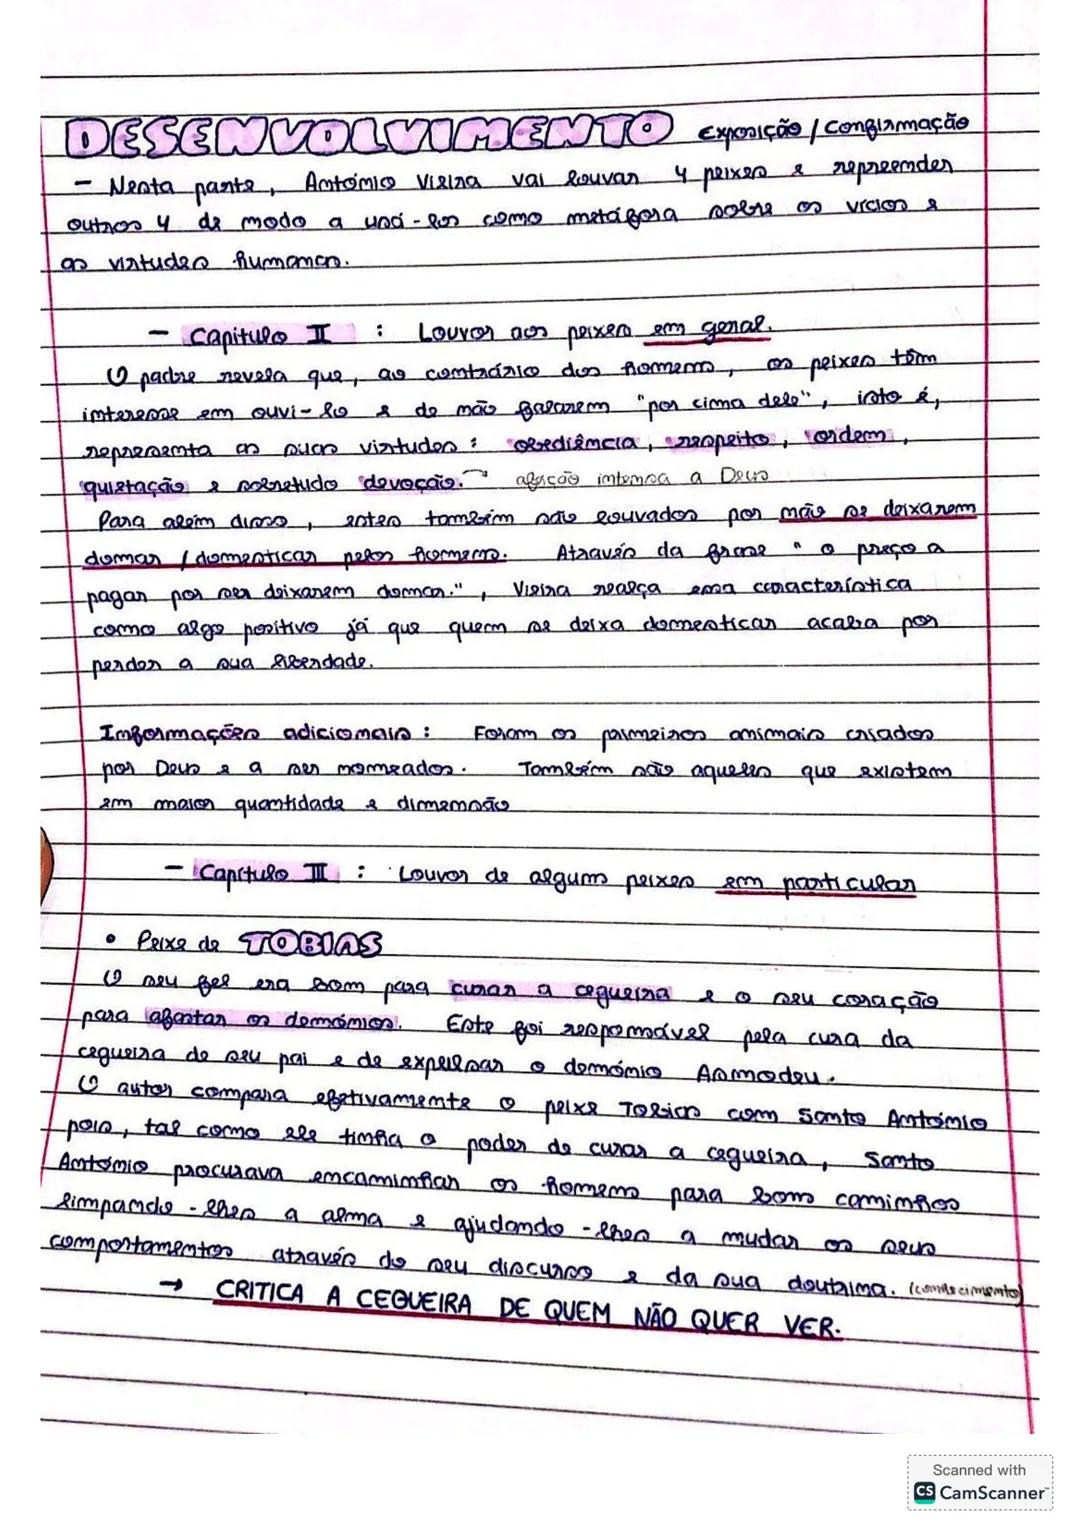 DESENVOLVIMENTO Exposição / Confirmação
- Nesta parte, António Vieira vai louvar 4 peixes e repreender
outros 4 de modo a usá-los como metáfora sobre os vícios e
as virtudes humanas.
- Capitulo II : Louvor aos peixes em geral.
O padre revela que, ao contrário dos homens, os peixes têm
interesse em ouvi-lo e de não falarem "por cima dele", isto é,
representa as suas virtudes : obediência, respeito, ordem,
quietação e sobretudo devoção. → afeção intensa a Deus
Para além disso, estes também são louvados por não se deixarem
domar / domesticar pelos homens. Através da frase " o preço a
pagar por ser deixarem domar.", Vieira realça essa característica
como algo positivo já que quem se deixa domesticar acaba por
perder a sua liberdade.
Informações adicionais : Foram os primeiros animais criados
por Deus e a ser nomeados. Também são aqueles que existem
em maior quantidade e dimensão
- Capítulo III : Louvor de alguns peixes em particular
• Peixe de TOBIAS
O seu fel era bom para curar a cegueira e o seu coração
para afastar os demónios. Este foi responsável pela cura da
cegueira do seu pai e de expelsar o demónio Asmodeu.
O autor compara efetivamente o peixe Tobias com Santo António
pois, tal como ele tinha o poder de curar a cegueira, Santo
António procurava encaminhar os homens para bons caminhos
limpando-lhes a alma e ajudando-lhes a mudar os seus
comportamentos através do seu discurso e da sua doutrina. (conhecimento)
→ CRITICA A CEGUEIRA DE QUEM NÃO QUER VER.
Scanned with
CS CamScanner